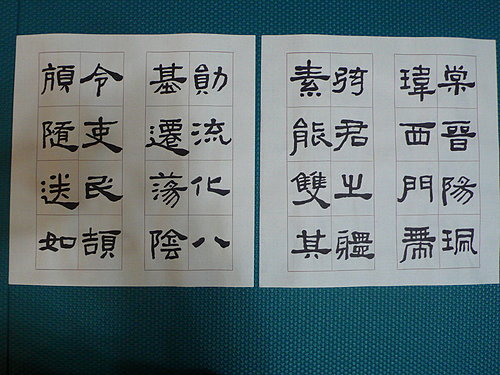 棠晉陽珮
瑋西門帶
弦君之體
素能雙其
勛流化八
基遷蕩陰
令吏民頡
頏隨送如